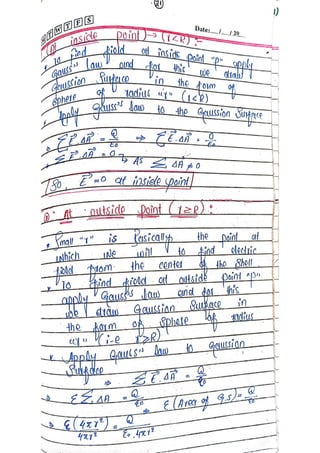 21
M T W T F S
Date: __/__/20__
(a) inside point) → (r<R) :-
• To find field at inside point "p" apply
Gauss's law and for this we draw
Gaussion Surface in the form of
sphere of radius "r" (r<R)
• Apply Gauss's law to the Gaussion Surface
• Σ E⃗.ΔA⃗ = Q/ε₀ ⇒ Σ E⃗.ΔA⃗ = 0/ε₀
• Σ E⃗.ΔA⃗ = 0 → As Σ ΔA ≠ 0
So E⃗ = 0 at inside point
At outside point (r≥R) :
• Small "r" is Basically the point at
which we will to find electric
field from the center of the Shell
• To find field at outside point "p"
apply Gauss's law and for this
we draw Gaussion Surface in
the form of Sphere of radius
"r" (i-e r≥R)
• Apply Gauss's law to gaussion
Surface ⇒ Σ E⃗.ΔA⃗ = Q/ε₀
⇒ E Σ ΔA = Q/ε₀ ⇒ E (Area of G.S) = Q/ε₀
⇒ E(4πr²)/4πr² = Q/ε₀.4πr²